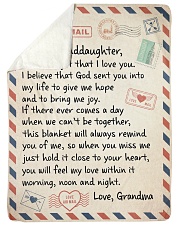 MAIL
ddaughter,
t that I love you.
I believe that God sent you into
my life to give me hope
and to bring me joy.
If there ever comes a day
when we can't be together,
this blanket will always remind
you of me, so when you miss me
just hold it close to your heart,
you will feel my love within it
morning, noon and night.
Love, Grandma